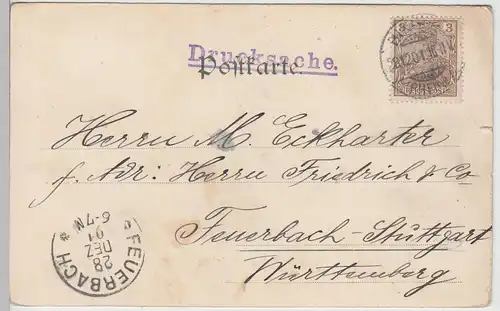 Drucksache.
Postkarte.
3
Herrn M. Eckharter
f. Adr: Herrn Friedrich & Co
Feuerbach-Stuttgart
Württemberg
FEUERBACH
28
DEZ
01
6-7N